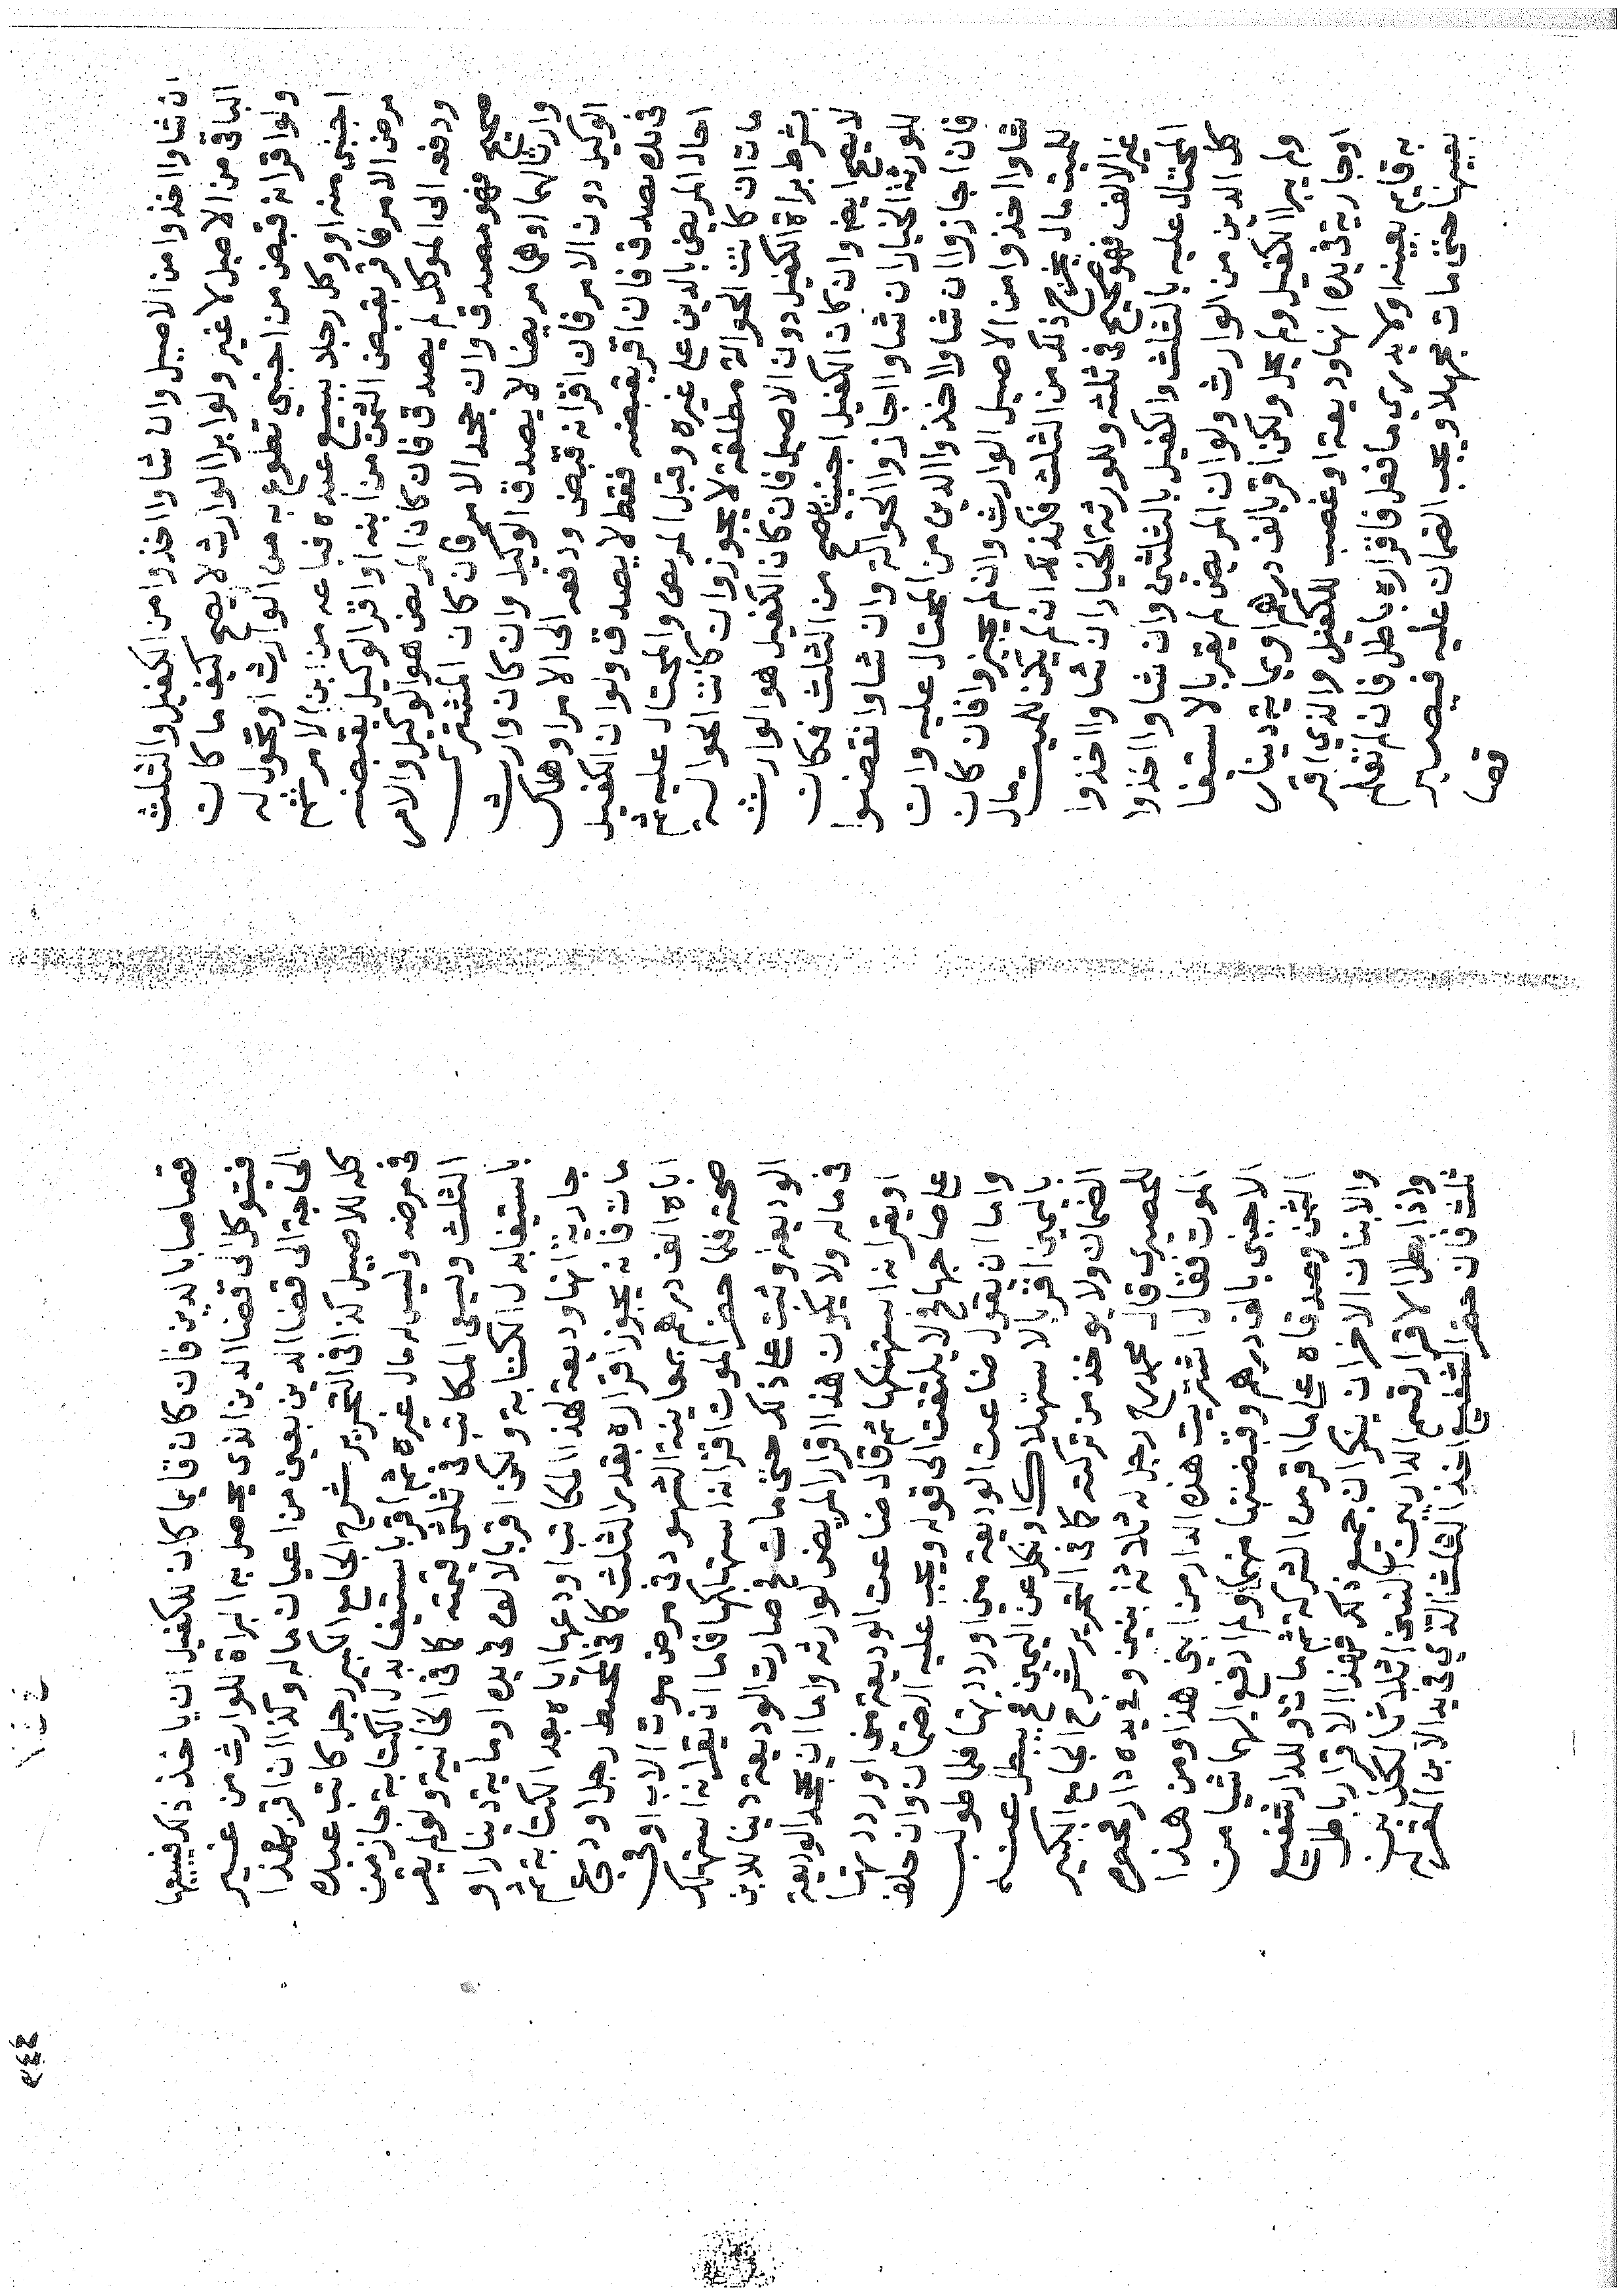 ان شاوا اخذوا من الاصيل وان شاوا اخذوا من الكفيل والثلث
الباقي من الاصيل لا غير ولو ابرا الوارث لا يصح كيف ما كان
ولو اقرانه قبض من اجنبي تطوع به من الوارث او تحول له
اجنبي منه او وكل رجلا ببيع عبده فباعه من ابن الامر ثم
مرض الامر فاقر بقبض الثمن من ابنه او اقر الوكيل بقبضه
ودفعه الى الموكل لم يصدق فان كان المريض هو الوكيل والامر
صحيح فهو مصدق وان جحد الامر فان كان المشتري
وارثا لهما او هما مريضا لا يصدق الوكيل وان كان وارث
الوكيل دون الامر فان اقر انه قبض ودفعه الى الامر او هلك
في يده يصدق فان اقر بقبضه فقط لا يصدق ولو ان الكفيل
احال المريض بالدين على غيره وقبل المريض والمحتال عليه ثم
مات ان كانت الحوالة مطلقة لا يجوز وان كانت الحوالة
بشرط براة الكفيل دون الاصيل فان كان الكفيل هو الوارث
لا يصح ايضا وان كان الكفيل اجنبيا يصح من الثلث فكان
للورثة الخيار ان شاوا اجازوا الحوالة وان شاوا نقضوا
فان اجازوا ان شاوا اخذوا الدين من المحتال عليه وان
شاوا اخذوا من الاصيل الوارث وان لم يجيزوا فان كان
للميت مال يخرج ذلك من الثلث فكذلك ان لم يكن للميت مال
غير الالف فهو صحيح في ثلثه وللورثة الخيار ان شاوا اخذوا
المحتال عليه بالثلث والكفيل بالثلثين وان شاوا اخذوا
كل الدين من الوارث ولو ان المريض لم يقر بالاستيفا
ولم يبرا الكفيل ولم يحل ولكن اقر بالف درهم او بماية دينار
او جارية في يده انها وديعة او غصب للكفيل والذي اقر
به قايم بعينه او لا يدري ما فعل فاقراره باطل فان لم تعلم
بعينها حتى مات مجهلا ويجب الضمان عليه فيصير
قصا
قصاصا بالدين فان كان قايما كان للكفيل ان ياخذ ذلك فيبيعها
فتوكل في قضا الدين الذي يحصل به البراة للوارث من غير
الحاجة الى قضا الدين بعين من اعيان ماله وكذا ان اقر بهذا
كله للاصيل كذا في التحرير شرح الجامع الكبير رجل كاتب عبده
في مرضه وليس له مال غيره ثم اقر باستيفا بدل الكتابة جاز من
الثلث ويسعى المكاتب في ثلثي قيمته كما في الخانية ولو لم يقر
باستيفا بدل الكتابة ولكن اقر بالالف في يده او ماية دينار او
جارية انها وديعة لهذا المكاتب اودعها اياه بعد الكتابة ثم
مات فانه يجوز اقراره بقدر الثلث كما في المحيط رجل اودع
اباه الف درهم بمعاينة الشهود في مرض موت الاب او في
صحته فلما حضر الموت اقر انه استهلكها فاما ان يقر انه استهلك
الوديعة وثبت على ذلك حتى مات صارت الوديعة دينا للابن
في ماله ولا يكون هذا اقرار المريض لوارثه واما ان يجحد الوديعة
او يقر انه استهلكها ثم قال ضاعت الوديعة مني او رددتها
على صاحبها لا يلتفت الى قوله ويجب عليه الضمان وان حلف
واما ان يقول ضاعت الوديعة مني او رددتها فلما طولب
باليمين اقر بالاستهلاك او نكل عن اليمين يبطل عنه
الضمان ولا يوخذ من تركته كما في التحرير شرح الجامع الكبير
للحصيري قال محمد رح رجل له ثلاثة بنين وفي يده دار فحضره
الموت فقال اشتريت هذه الدار من ابني هذا ومن هذا
الاجنبي بالف درهم وقبضتها منهما ولم ادفع اليهما شيا من
الثمن وصدقاه على ما اقر من الشركة ثم مات وللدار شفيع
والابنان الاخران ينكران جميع ذلك فهذا الاقرار باطل
واذا بطل الاقرار قسم الدار بين البنين اثلاثا لكل ابن
ثلث فان حضر الشفيع اخذ الثلث الذي في يد الابن المقر له
٩٤٤